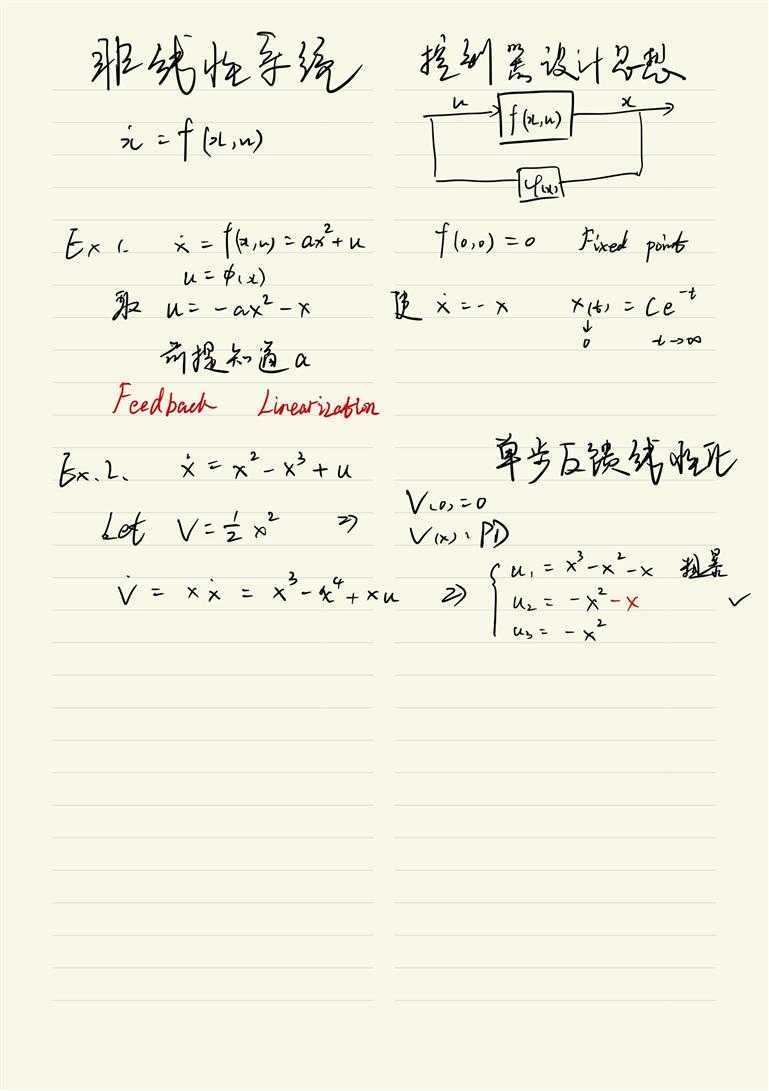 非线性系统 控制器设计思想
ẋ = f(x,u)
u f(x,u) x
φ(x)
Ex 1. ẋ = f(x,u) = ax² + u f(0,0) = 0 Fixed point
u = φ(x)
取 u = -ax² - x 使 ẋ = -x x(t) = Ce^{-t}
↓ 0 t→∞
前提知道 a
Feedback Linearization
单步反馈线性化
Ex. 2. ẋ = x² - x³ + u
V(0) = 0
Let V = ½ x² ⇒ V(x): PD
V̇ = xẋ = x³ - x⁴ + xu ⇒ { u₁ = x³ - x² - x 粗暴
u₂ = -x² - x ✓
u₃ = -x²